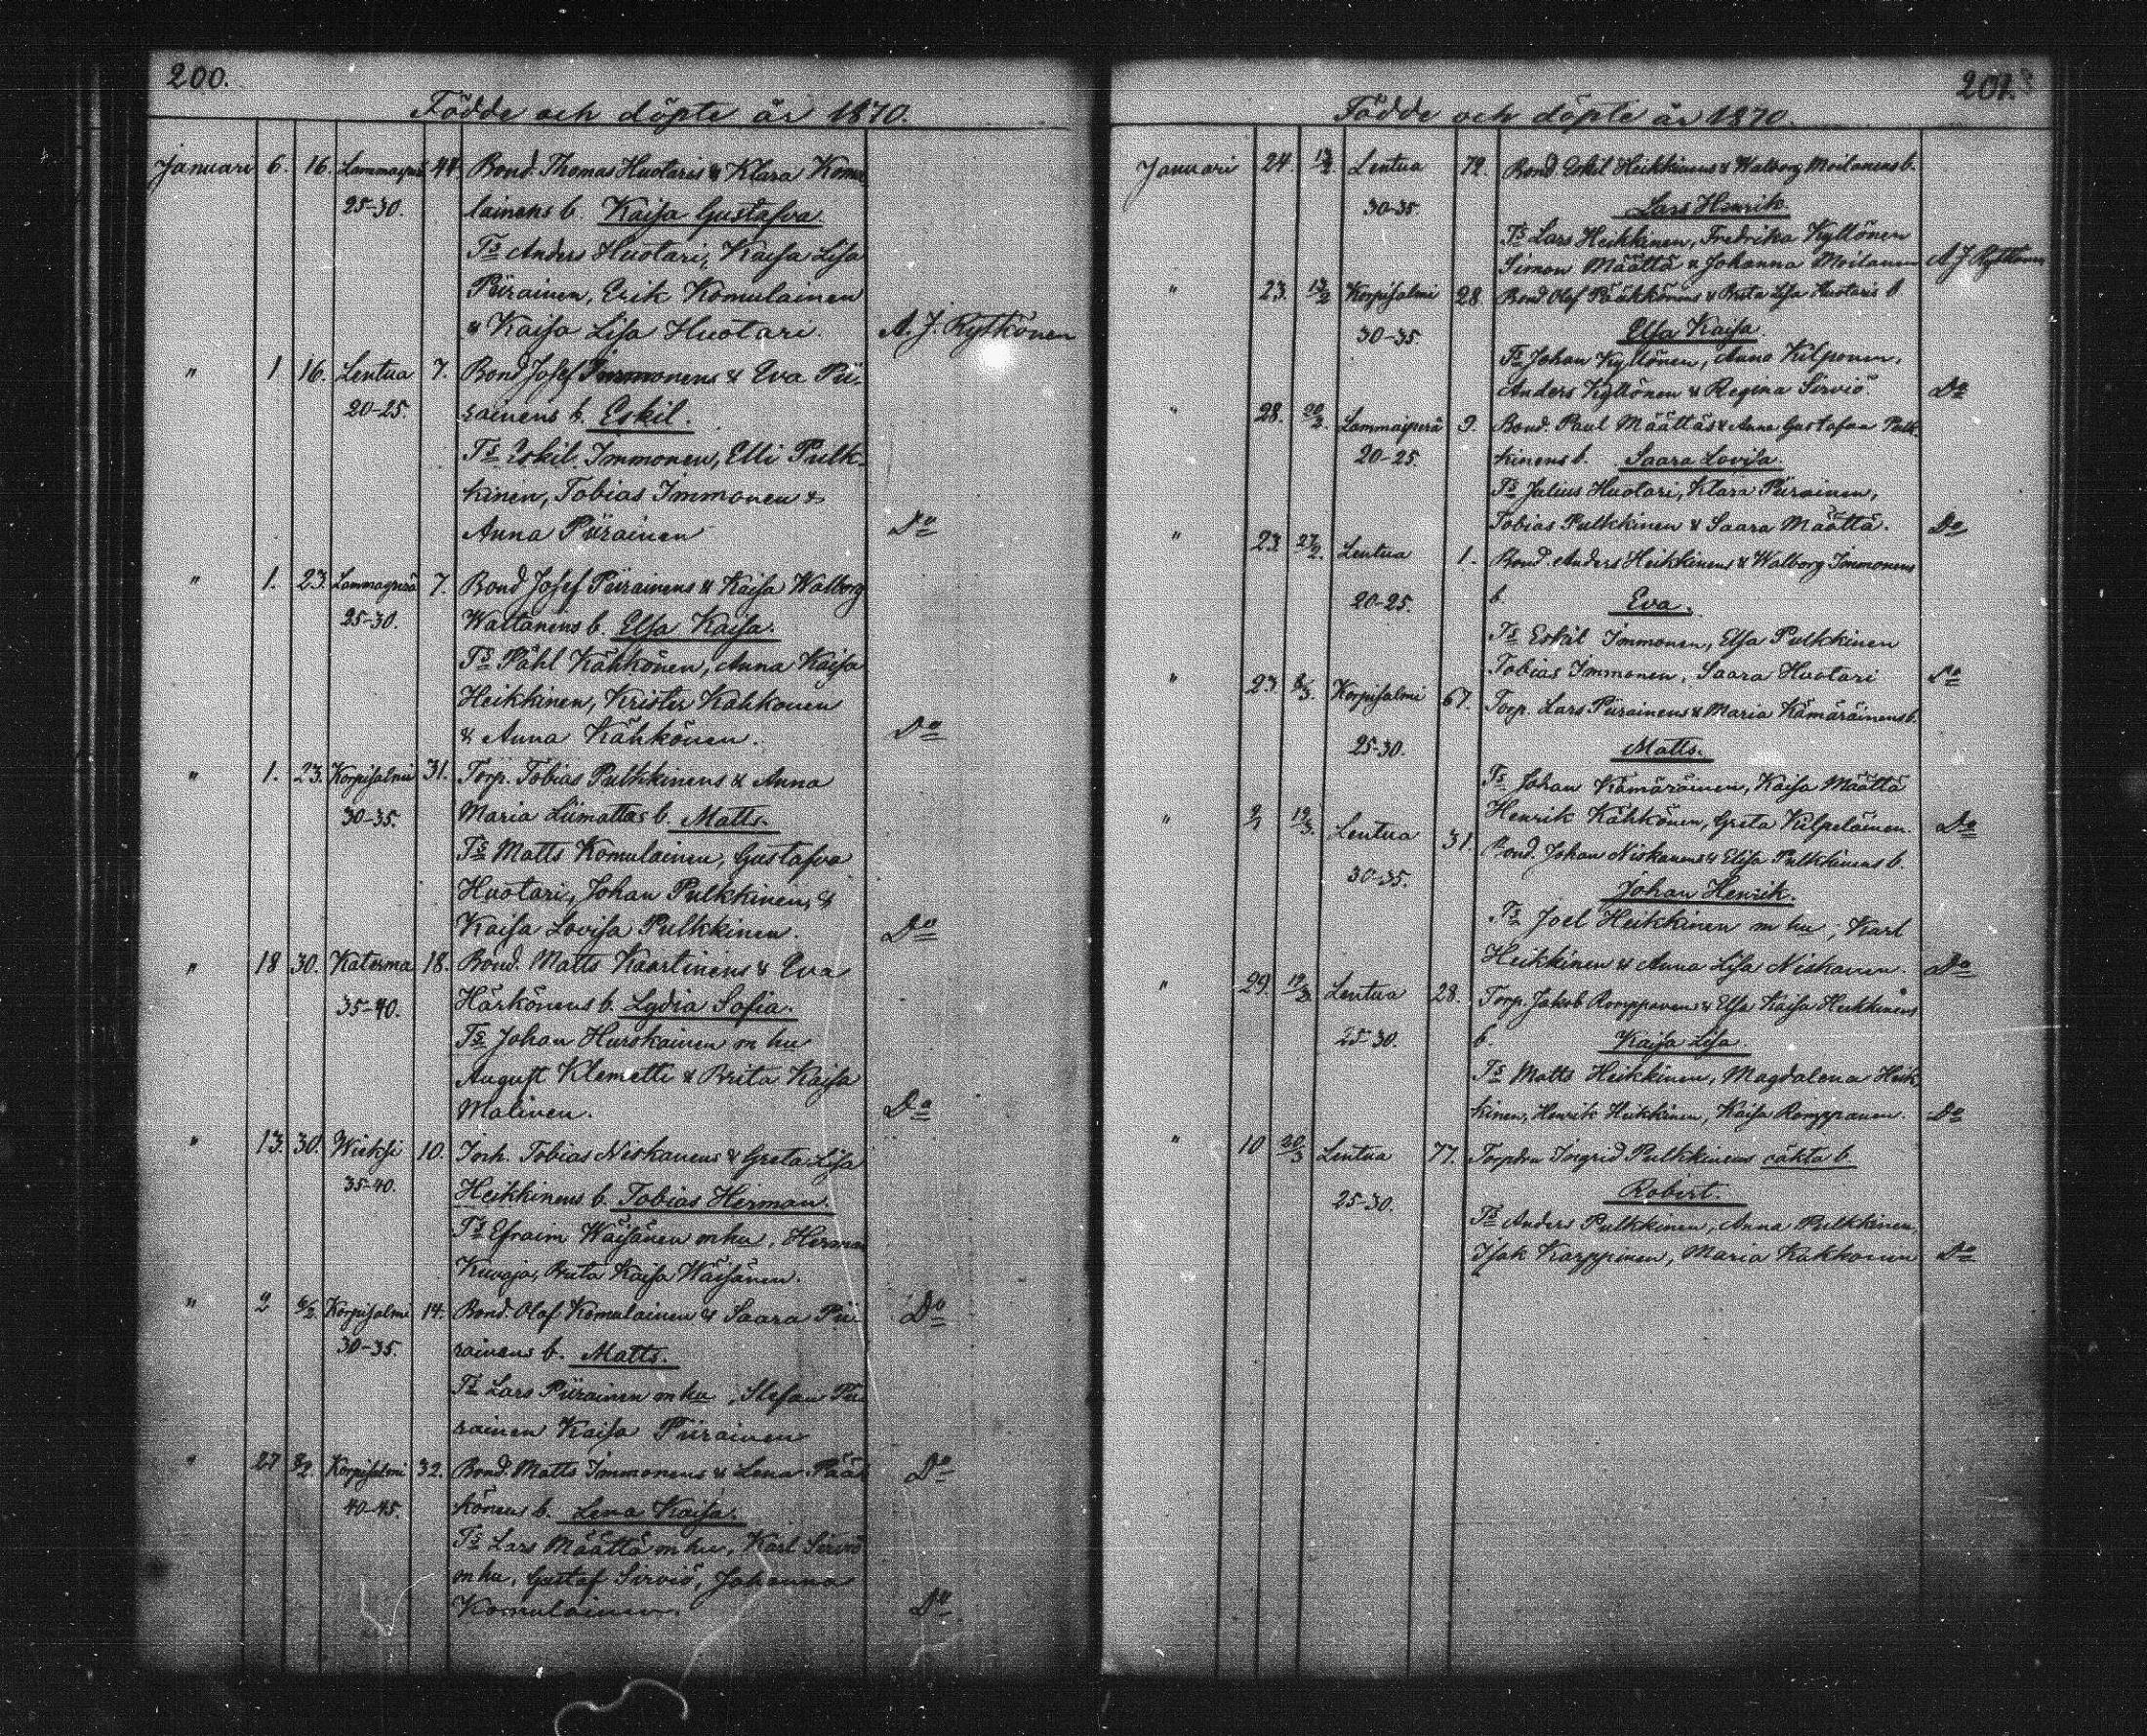 200.
Födde och döpte år 1870.
Januari 6. 16. Lammasperä 44. Bond. Thomas Huotaris & Klara Komu
25-30. lainens b. Kaisa Gustafva.
Ts Anders Huotari, Kaisa Lisa
Piirainen, Erik Komulainen
& Kaisa Lisa Huotari. A. J. Rytkönen
" 1 16. Lentua 7. Bond Josef Immonens & Eva Pii-
20-25. rainens b. Eskil.
Ts Eskil Immonen, Elli Pulk-
kinen, Tobias Immonen &
Anna Piirainen Do
" 1. 23. Lammasperä 7. Bond Josef Piirainens & Kaisa Walborg
25-30. Wattanens b. Elsa Kaisa.
Ts Påhl Kähkönen, Anna Kaisa
Heikkinen, Krister Kähkönen
& Anna Kähkönen. Do
" 1. 23. Korpisalmi 31. Torp. Tobias Pulkkinens & Anna
30-35. Maria Liimattas b. Matts.
Ts Matts Komulainen, Gustafva
Huotari, Johan Pulkkinen, &
Kaisa Lovisa Pulkkinen. Do
" 18 30. Katerma 18. Bond. Matts Kaartinens & Eva
35-40. Härkönens b. Lydia Sofia.
Ts Johan Hurskainen m hu
August Klemetti & Brita Kaisa
Malinen. Do
" 13. 30. Wieksi 10. Inh. Tobias Niskanens & Greta Lisa
35-40. Heikkinens b. Tobias Herman.
Ts Efraim Wäisänen m hu, Herman
Kuvaja, Brita Kaisa Wäisänen.
" 2 6/2. Korpisalmi 14. Bond. Olof Komulainen & Saara Pii- Do
30-35. rainens b. Matts.
Ts Lars Piirainen m hu, Stefan Pii
rainen Kaisa Piirainen
" 27 8/2. Korpisalmi 32. Bond. Matts Immonens & Lena Pääk Do
40-45. könens b. Lena Kaisa.
Ts Lars Määttä m hu, Karl Sirviö
m hu, Gustaf Sirviö, Johanna
Komulainen. Do
201.
Födde och döpte år 1870.
Januari 24. 13/2. Lentua 72. Bond Eskil Heikkinens & Walborg Moilanens b.
30-35. Lars Henrik.
Ts Lars Heikkinen, Fredrika Kyllönen
Simon Määttä & Johanna Moilanen A J Rytkönen
" 23. 13/2 Korpisalmi 28. Bond Olof Pääkkönens & Brita Lisa Huotaris b
30-35. Elsa Kaisa.
Ts Johan Kyllönen, Anna Kilponen,
Anders Kyllönen & Regina Sirviö. Do
" 28. 20/2. Lammasperä 9. Bond. Paul Määttäs & Anna Gustafva Pulk-
20-25. kinens b. Saara Lovisa.
Ts Julius Huotari, Klara Piirainen,
Tobias Pulkkinen & Saara Määttä. Do
" 23 27/2. Lentua 1. Bond. Anders Heikkinens & Walborg Immonens
20-25. b. Eva.
Ts Eskil Immonen, Elsa Pulkkinen
Tobias Immonen, Saara Huotari Do
" 23 6/3. Korpisalmi 67. Torp. Lars Piirainens & Maria Kämäräinens b.
25-30. Matts.
Ts Johan Kämäräinen, Kaisa Määttä
Henrik Kähkönen, Greta Kilpeläinen. Do
" 13/3. Lentua 31. Bond. Johan Niskanens & Elisa Pulkkinens b.
30-35. Johan Henrik.
Ts Joel Heikkinen m hu, Karl
Heikkinen & Anna Lisa Niskanen. Do
" 29. 13/3. Lentua 28. Torp. Jakob Romppanens & Elsa Kaisa Heikkinens
25-30. b. Kaisa Lisa.
Ts Matts Heikkinen, Magdalena Heik
kinen, Henrik Heikkinen, Kaisa Romppanen. Do
" 10 20/3 Lentua 77. Torpdrn Ingrid Pulkkinens oäkta b.
25-30. Robert.
Ts Anders Pulkkinen, Anna Pulkkinen,
Isak Karppinen, Maria Kähkönen Do